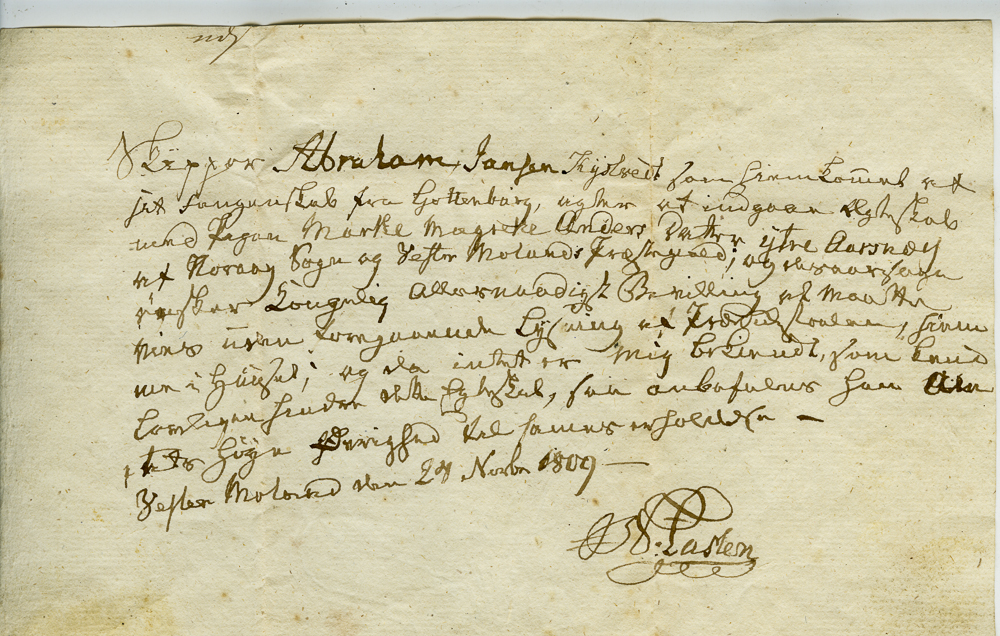 Skipper Abraham Jansen Tiystvedt som hiemkommet af
sit Fangenskab fra Gottenborg, agter at indgaae Egteskab
med Pigen Marte Margrete Anders Datter ytre Aarsnæs
af Sogn og Vester Molands Præstegield; og aarsage
ønsker Kongelig Allernaadigst Bevilling at maatte
vies uden foregaaende Lysning af Prædikestolen, hiem
me i Huuset; og da intet er mig bekiendt, som kand
lovligen hindre dette Egteskab, saa anbefales han
høye Øvrighed til sammes erholdelse –
Vester Moland den 27 Novbr 1809 –